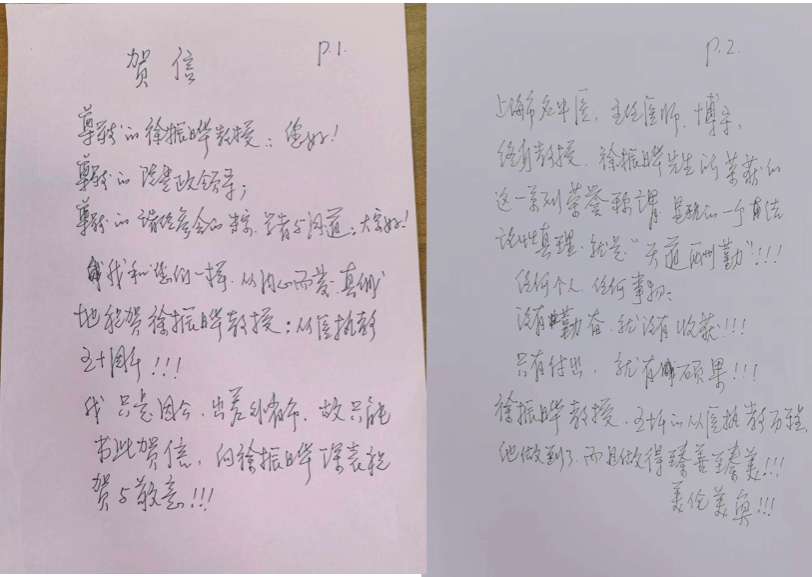 贺信
P.1.
尊敬的徐振晔教授:您好!
尊敬的院党政领导;
尊敬的诸位参会的专家、学者与同道:大家好!
我和您们一样,从内心而发,真诚
地祝贺徐振晔教授:从医执教
五十周年!!!
我只是因公、出差外省市,故只能
书此贺信,向徐振晔深表祝
贺与敬意!!!
P.2.
上海市名中医,主任医师、博导、
终身教授、徐振晔先生所荣获的
这一系列荣誉称谓,显现的一个有法
论性真理,就是"天道酬勤"!!!
任何个人、任何事物:
没有勤奋,就没有收获!!!
只有付出,就有硕果!!!
徐振晔教授、五十年的从医执教历程,
他做到了,而且做得臻善至臻美!!!
美伦美奂!!!